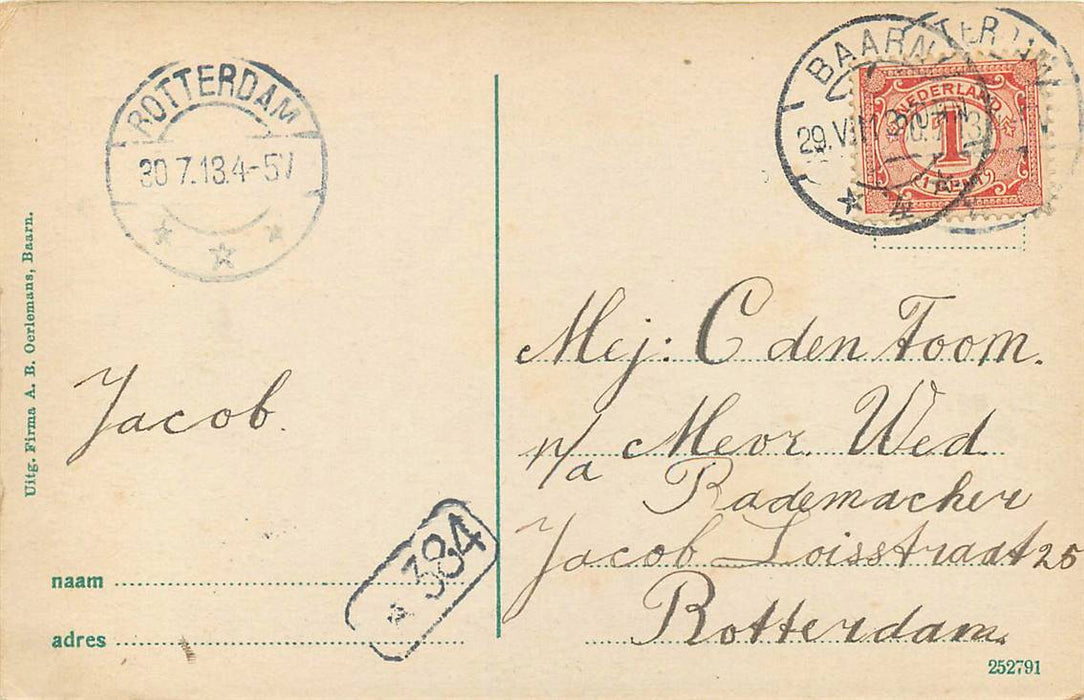 ROTTERDAM
30 7.13.4-5V
BAARN
29.VII
TERDAM
NEDERLAND
1
1 CENT
Uitg. Firma A. B. Oerlemans, Baarn.
Jacob.
Mej: C den Toom.
p/a Mevr. Wed
Rademacher
Jacob Loisstraat 25
Rotterdam.
384
naam
adres
252791